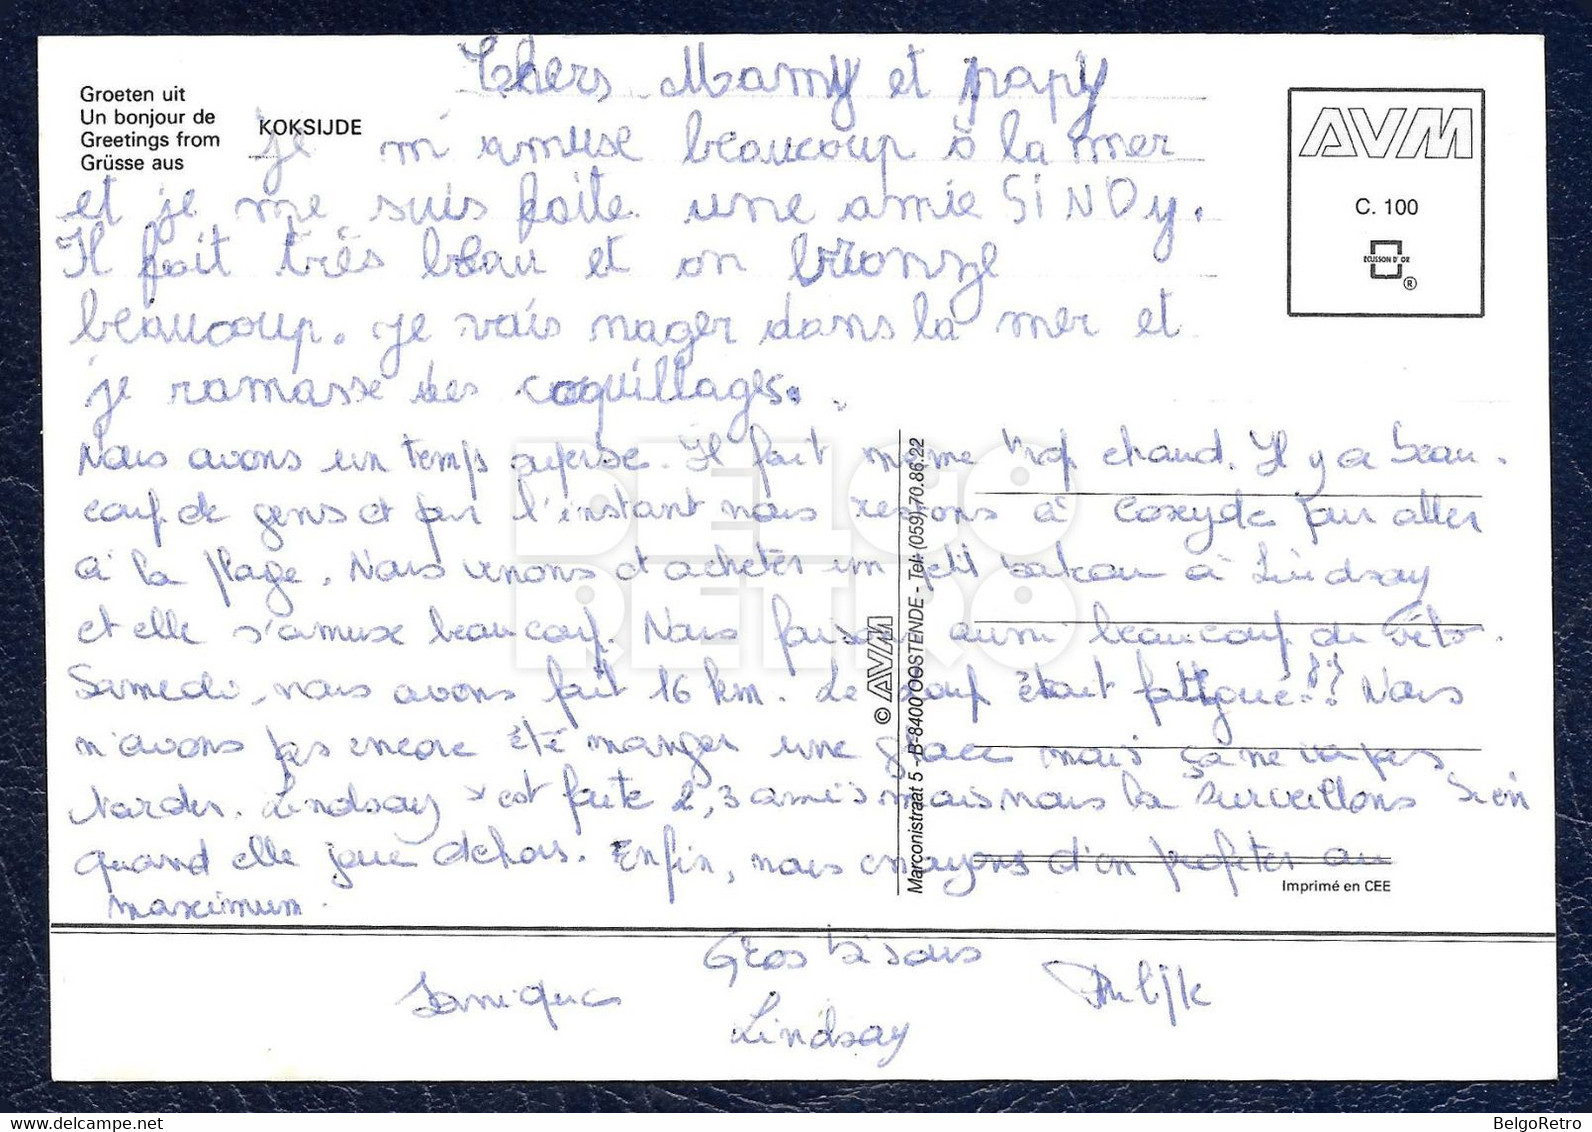 Groeten uit
Un bonjour de
Greetings from
Grüsse aus
KOKSIJDE
AVM
C. 100
ECUSSON D'OR
®
Chers Mamy et papy
je m'amuse beaucoup à la mer
et je me suis faite une amie SINDy.
Il fait très beau et on bronze
beaucoup. je vais nager dans la mer et
je ramasse des coquillages.
Nous avons un temps superbe. Il fait même trop chaud. Il y a beau-
coup de gens et pour l'instant nous restons à Coxyde pour aller
à la plage. Nous venons d'acheter un petit bateau à Lindsay
et elle s'amuse beaucoup. Nous faisons aussi beaucoup du vélo.
Samedi, nous avons fait 16 km. Le soir était fatigué!! Nous
n'avons pas encore été manger une glace mais ça ne va pas
tarder. Lindsay s'est faite 2, 3 amis mais nous la surveillons bien
quand elle joue dehors. Enfin, nous essayons d'en profiter au
maximum.
Gros bisous
Lindsay
© AVM
Marconistraat 5 - B-8400 OOSTENDE - Tel. (059) 70.86.22
Imprimé en CEE
BELGO
RETRO
www.delcampe.net
BelgoRetro